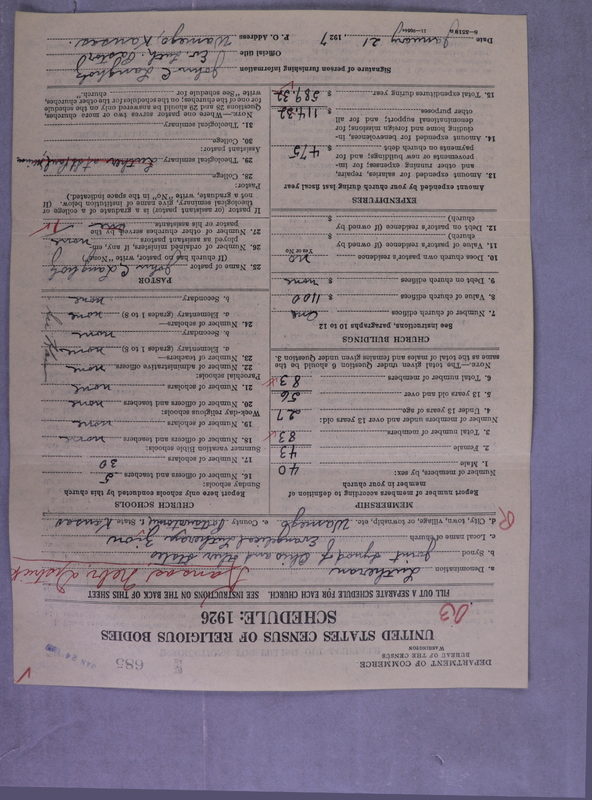 DEPARTMENT OF COMMERCE
BUREAU OF THE CENSUS
WASHINGTON
685
UNITED STATES CENSUS OF RELIGIOUS BODIES
SCHEDULE: 1926
FILL OUT A SEPARATE SCHEDULE FOR EACH CHURCH. SEE INSTRUCTIONS ON THE BACK OF THIS SHEET
a. Denomination Lutheran
b. Synod Joint Synod of Ohio and other States
c. Local name of church Evangelical Lutheran Zion
d. City, town, village, or township, etc. Wamego e. County Pottawatomie, f. State Kansas
MEMBERSHIP
Report number of members according to definition of
member in your church
Number of members, by sex:
1. Male 40
2. Female 43
3. Total number of members 83
Number of members under and over 13 years old:
4. Under 13 years of age 27
5. 13 years old and over 56
6. Total number of members 83
NOTE.—The total given under Question 6 should be the
same as the total of males and females given under Question 3.
CHURCH BUILDINGS
See instructions, paragraphs 10 to 12
7. Number of church edifices one
8. Value of church edifices $ 1100
9. Debt on church edifices $ none
10. Does church own pastor's residence no
Yes or No
11. Value of pastor's residence (if owned by
church) $
12. Debt on pastor's residence (if owned by
church) $
EXPENDITURES
Amount expended by your church during last fiscal year
13. Amount expended for salaries, repairs,
and other running expenses; for im-
provements or new buildings; and for
payments on church debt $ 475
14. Amount expended for benevolences, in-
cluding home and foreign missions; for
denominational support; and for all
other purposes $ 114.32
15. Total expenditures during year $ 589.32
CHURCH SCHOOLS
Report here only schools conducted by this church
Sunday schools:
16. Number of officers and teachers 5
17. Number of scholars 30
Summer vacation Bible schools:
18. Number of officers and teachers none
19. Number of scholars none
Week-day religious schools:
20. Number of officers and teachers none
21. Number of scholars none
Parochial schools:
22. Number of administrative officers none
23. Number of teachers—
a. Elementary (grades 1 to 8) none
b. Secondary none
24. Number of scholars—
a. Elementary (grades 1 to 8) none
b. Secondary none
PASTOR
25. Name of pastor John C Langholz
(If church has no pastor, write "None")
26. Number of ordained ministers, if any, em-
ployed as assistant pastors none
27. Number of other churches served by the
pastor or his assistants one
If pastor (or assistant pastor) is a graduate of a college or
theological seminary, give name of institution below. (If
not a graduate, write "No" in the space indicated.)
Pastor:
28. College
29. Theological seminary Luther at St Paul, Minn
Assistant pastor:
30. College
31. Theological seminary
NOTE.—Where one pastor serves two or more churches,
Questions 28 and 29 should be answered only on the schedule
for one of the churches; on the schedules for the other churches,
write "See schedule for church."
Signature of person furnishing information John C Langholz
Official title Ev. Luth. Pastor
P. O. Address Wamego, Kansas.
Date January 21, 1927